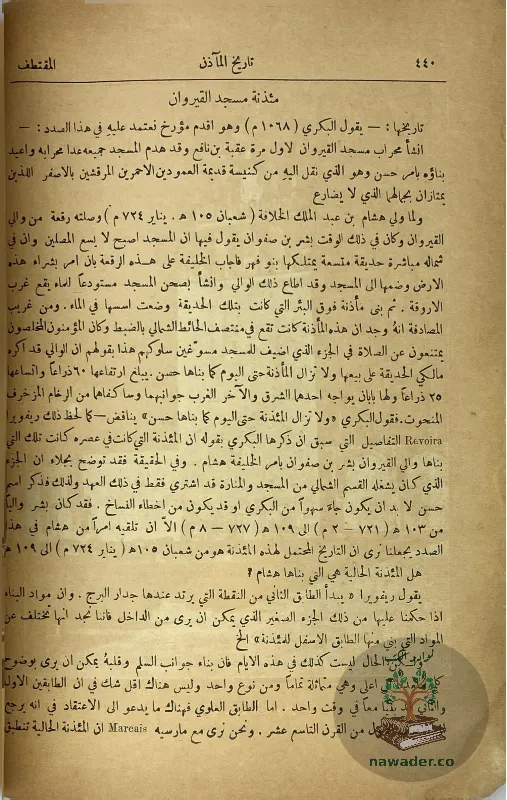 ٤٤٠ تاريخ المآذن المقتطف
مئذنة مسجد القيروان
تاريخها : — يقول البكري ( ١٠٦٨ م ) وهو اقدم مؤرخ نعتمد عليه في هذا الصدد : —
انشأ محراب مسجد القيروان لاول مرة عقبة بن نافع وقد هدم المسجد جميعه عدا محرابه واعيد
بناؤه بامر حسن وهو الذي نقل اليه من كنيسة قديمة العمودين الاحمرين المرقشين بالاصفر اللذين
يمتازان بجمالهما الذي لا يضارع
ولما ولي هشام بن عبد الملك الخلافة ( شعبان ١٠٥ ه . يناير ٧٢٤ م ) وصلته رقعة من والي
القيروان وكان في ذلك الوقت بشر بن صفوان يقول فيها ان المسجد اصبح لا يسع المصلين وان في
شماله مباشرة حديقة متسعة يمتلكها بنو فهر فاجاب الخليفة على هذه الرقعة بان امر بشراء هذه
الارض وضمها الى المسجد وقد اطاع ذلك الوالي وانشأ بصحن المسجد مستودعاً لماء يقع غرب
الاروقة . ثم بنى مأذنة فوق البئر التي كانت بتلك الحديقة وضعت اسسها في الماء . ومن غريب
المصادفة انه وجد ان هذه المأذنة كانت تقع في منتصف الحائط الشمالي بالضبط وكان المؤمنون المخلصون
يمتنعون عن الصلاة في الجزء الذي اضيف للمسجد مسوغين سلوكهم هذا بقولهم ان الوالي قد اكره
مالكي الحديقة على بيعها ولا تزال المأذنة حتى اليوم كما بناها حسن . يبلغ ارتفاعها ٦٠ ذراعاً واتساعها
٢٥ ذراعاً ولها بابان يواجه احدهما الشرق والآخر الغرب جوانبهما وساكفاهما من الرخام المزخرف
المنحوت . فقول البكري « ولا تزال المئذنة حتى اليوم كما بناها حسن » يناقض — كما لحظ ذلك ريفويرا
Revoira التفاصيل التي سبق ان ذكرها البكري بقوله ان المئذنة التي كانت في عصره كانت تلك التي
بناها والي القيروان بشر بن صفوان بامر الخليفة هشام . وفي الحقيقة فقد توضح بجلاء ان الجزء
الذي كان يشغله القسم الشمالي من المسجد والمنارة قد اشتري فقط في ذلك العهد ولذلك فذكر اسم
حسن لا بد ان يكون جاء سهواً من البكري او قد يكون من اخطاء النساخ . فقد كان بشر والياً
من ١٠٣ ه ( ٧٢١ — ٢ م ) الى ١٠٩ ه ( ٧٢٧ — ٨ م ) الا ان تلقيه امراً من هشام في هذا
الصدد يجعلنا نرى ان التاريخ المحتمل لهذه المئذنة هو من شعبان ١٠٥ ه ( يناير ٧٢٤ م ) الى ١٠٩ ه
هل المئذنة الحالية هي التي بناها هشام ؟
يقول ريفويرا « يبدأ الطابق الثاني من النقطة التي يرتد عندها جدار البرج . وان مواد البناء
اذا حكمنا عليها من ذلك الجزء الصغير الذي يمكن ان يرى من الداخل فاننا نجد انها تختلف عن
المواد التي بني منها الطابق الاسفل للمئذنة » الخ
الحال ليست كذلك في هذه الايام فان بناء جوانب السلم وقلبه يمكن ان يرى بوضوح
اعلى وهي متماثلة تماماً ومن نوع واحد وليس هناك اقل شك في ان الطابقين الاول
والثاني معاً في وقت واحد . اما الطابق العلوي فهناك ما يدعو الى الاعتقاد في انه يرجع
من القرن التاسع عشر . ونحن نرى مع مارسيه Marcais ان المئذنة الحالية تنطبق
نوادر الكتب
nawader.co